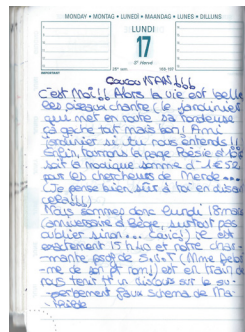 MONDAY • MONTAG • LUNEDÌ • MAANDAG • LUNES • DILLUNS
LUNDI
17
S^t Hervé
Coucou !!!
C'est Moi !! Alors la vie est belle
les oiseaux chante (le jardinier
qui met en route sa tondeuse
ça gache tout mais bon! Ami
jardinier si tu nous entends !!
Enfin, tournons la page Poésie et
la modique somme d' 1€52
par les chercheurs de Merde ...
(Je pense bien sûr à toi en disant
cela !!!)
Nous sommes donc lundi 18 mai
(anniversaire d' surtout pas
oublier sinon... ) il est
exactement 15h40 et notre char-
-mante prof de S.N.T (Mme
-me de son pt nom) est en train de
nous tenir un discours sur le su-
-perbement faux schéma de Ma-